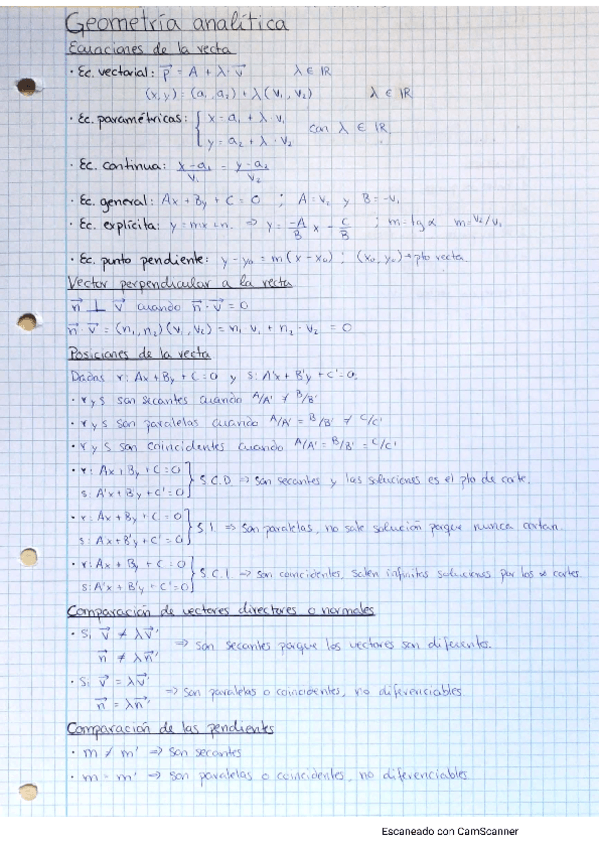 Geometría analítica
Ecuaciones de la recta
· Ec. vectorial: p⃗ = A + λ · v⃗   λ ∈ ℝ
(x, y) = (a₁, a₂) + λ (v₁, v₂)   λ ∈ ℝ
· Ec. paramétricas: { x = a₁ + λ · v₁
y = a₂ + λ · v₂   con λ ∈ ℝ
· Ec. continua: (x - a₁)/v₁ = (y - a₂)/v₂
· Ec. general: Ax + By + C = 0 ; A = v₂ y B = -v₁
· Ec. explícita: y = mx + n ⇒ y = -A/B x - C/B ; m = tg α m = v₂/v₁
· Ec. punto pendiente: y - y₀ = m (x - x₀) ; (x₀, y₀) → pto recta
Vector perpendicular a la recta
n⃗ ⊥ v⃗ cuando n⃗ · v⃗ = 0
n⃗ · v⃗ = (n₁, n₂)(v₁, v₂) = n₁ · v₁ + n₂ · v₂ = 0
Posiciones de la recta
Dadas r: Ax + By + C = 0 y s: A'x + B'y + C' = 0
· r y s son secantes cuando A/A' ≠ B/B'
· r y s son paralelas cuando A/A' = B/B' ≠ C/C'
· r y s son coincidentes cuando A/A' = B/B' = C/C'
· r: Ax + By + C = 0
s: A'x + B'y + C' = 0 } S.C.D ⇒ son secantes y las soluciones es el pto de corte.
· r: Ax + By + C = 0
s: A'x + B'y + C' = 0 } S.I ⇒ son paralelas, no sale solución porque nunca cortan.
· r: Ax + By + C = 0
s: A'x + B'y + C' = 0 } S.C.I → son coincidentes, salen infinitas soluciones por los ∞ cortes.
Comparación de vectores directores o normales
· Si v⃗ ≠ λv⃗'
n⃗ ≠ λn⃗' ⇒ son secantes porque los vectores son diferentes.
· Si v⃗ = λv⃗'
n⃗ = λn⃗' ⇒ son paralelas o coincidentes, no diferenciables
Comparación de las pendientes
· m ≠ m' ⇒ son secantes
· m = m' ⇒ son paralelas o coincidentes, no diferenciables
Escaneado con CamScanner